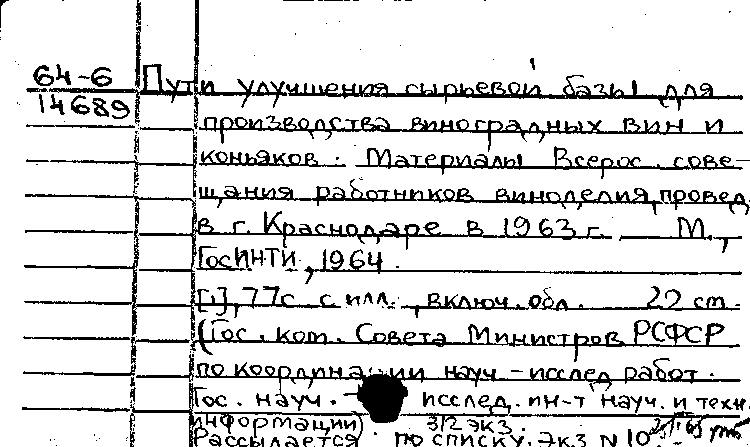 64-6 Пути улучшения сырьевой базы для
14689 производства виноградных вин и
коньяков. Материалы Всерос. сове-
щания работников виноделия, провед.
в г. Краснодаре в 1963 г. М.,
ГосИНТИ, 1964.
[1], 77 с. с илл., включ. обл. 22 см.
(Гос. ком. Совета Министров РСФСР
по координации науч.-исслед. работ.
Гос. науч.- исслед. ин-т науч. и техн.
информации) 312 экз.
Рассылается по списку. Экз N 10